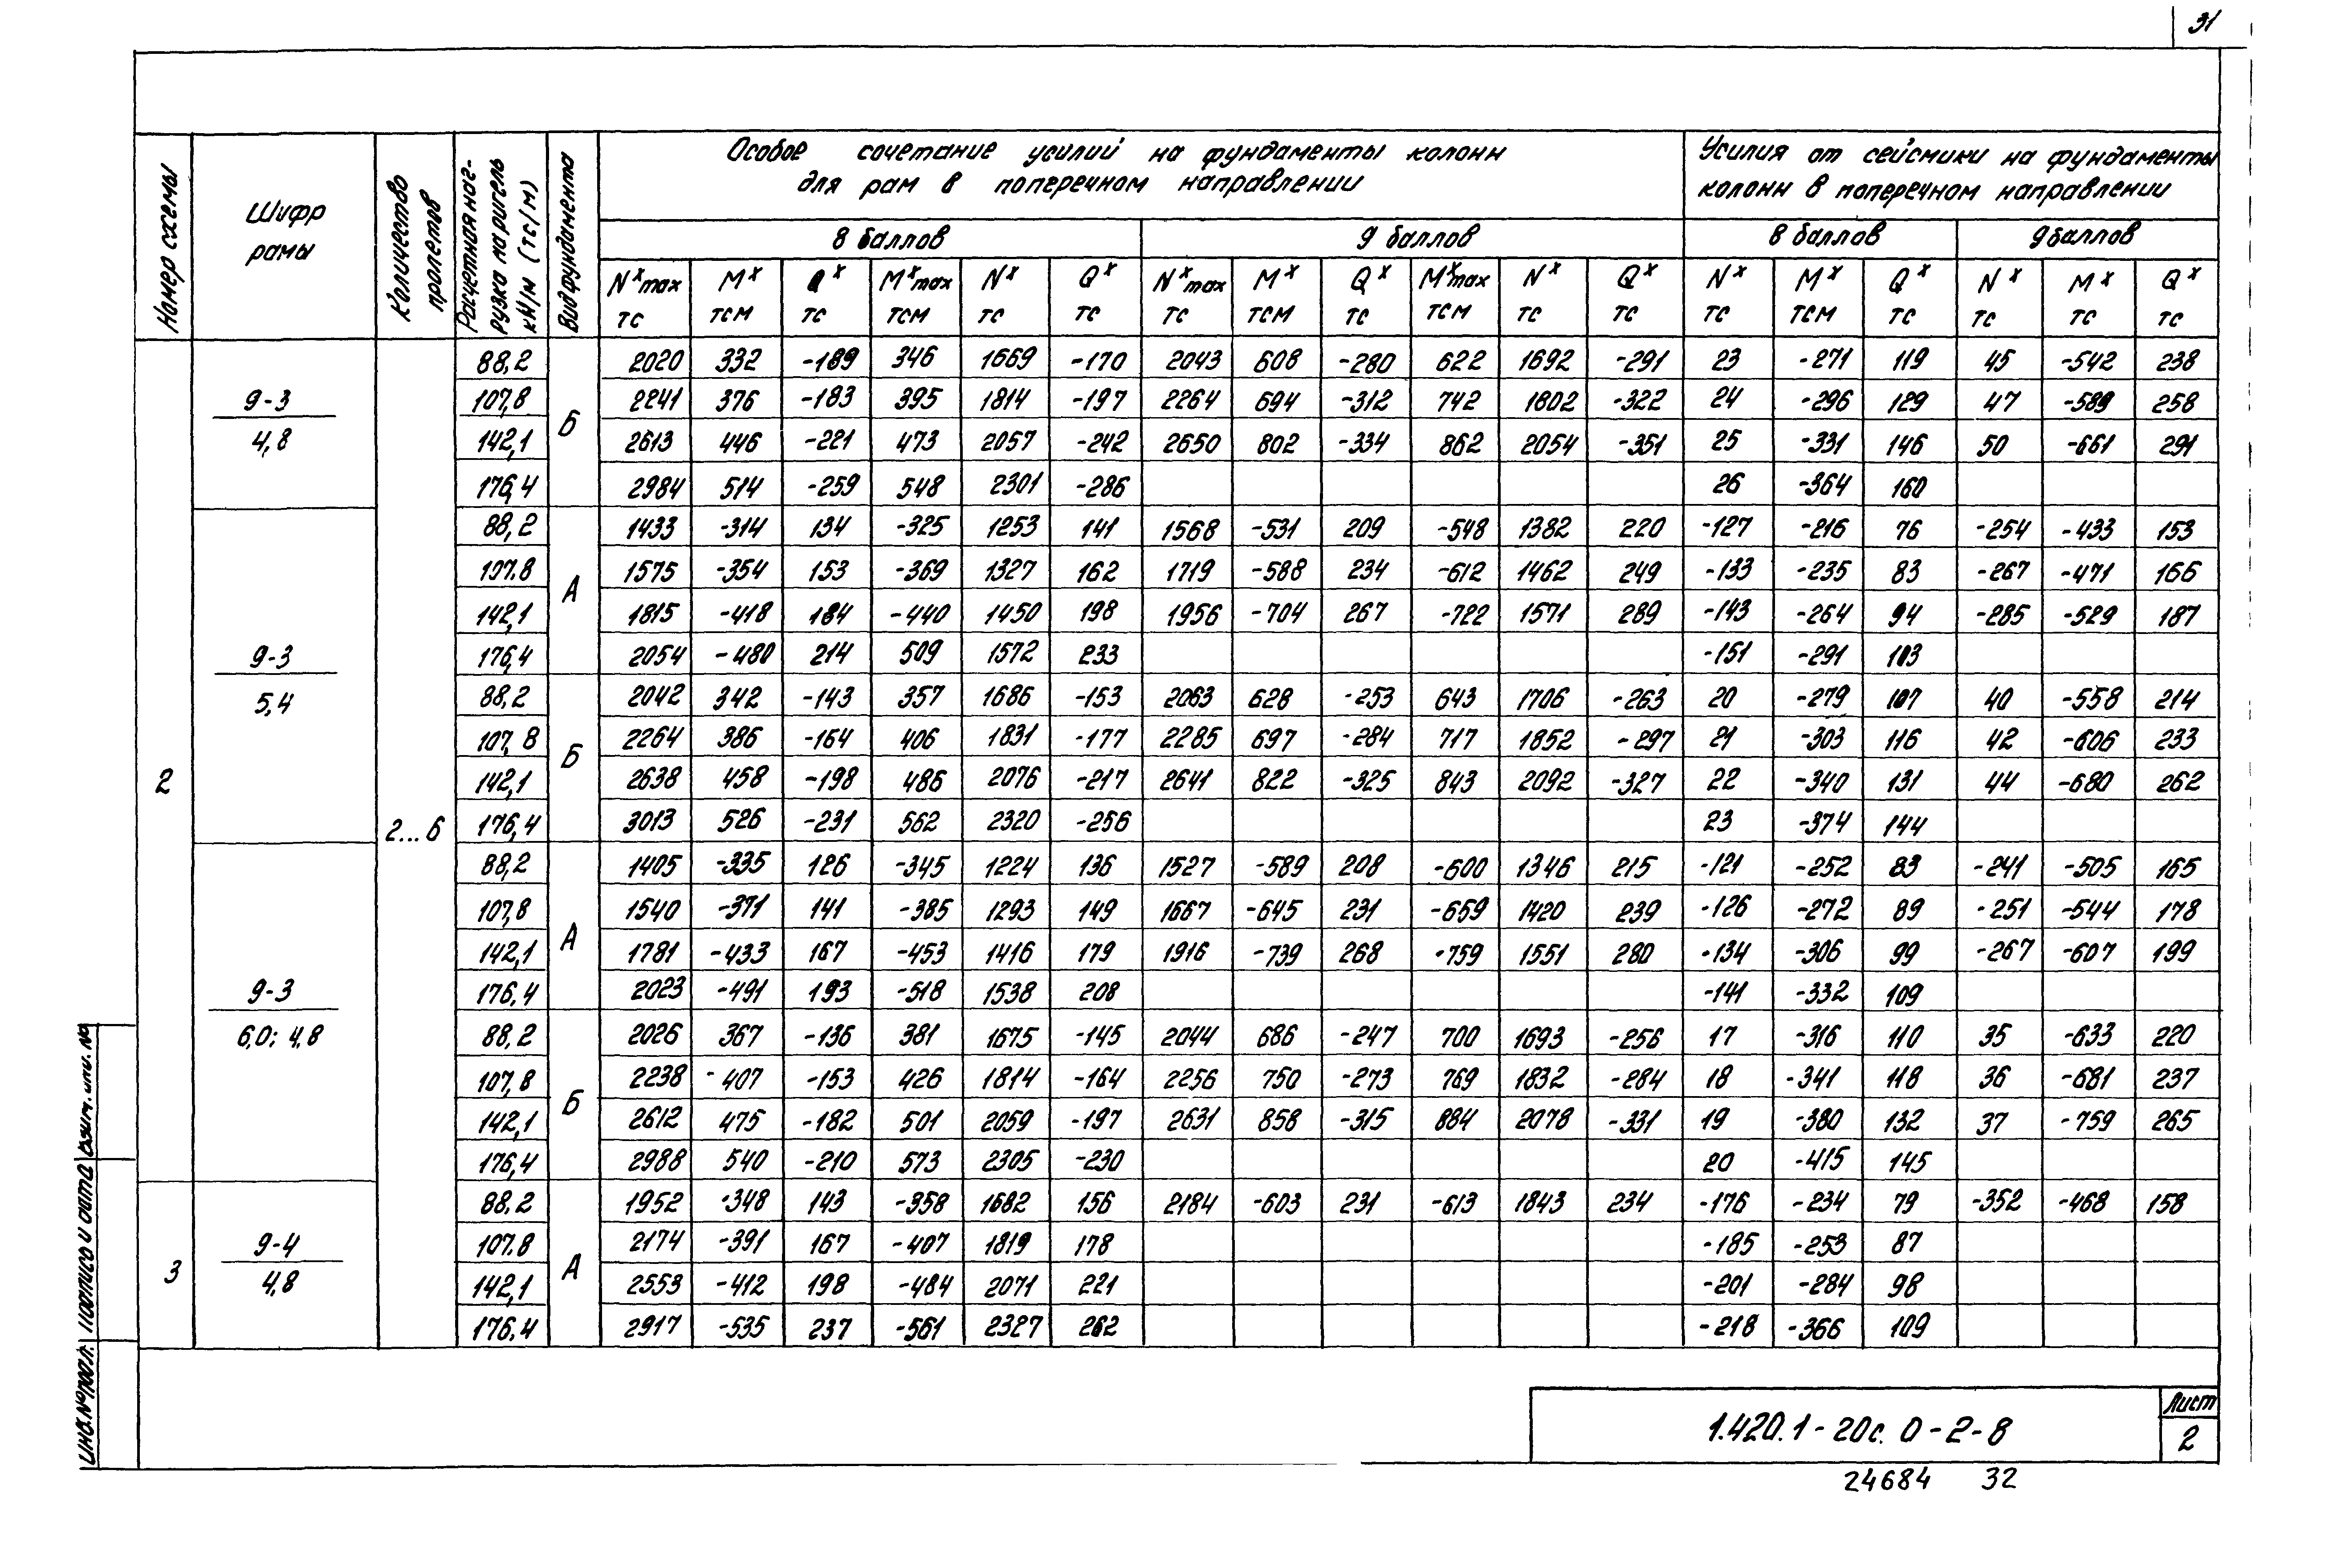 31
Номер схемы
Шифр рамы
Количество пролетов
Расчетная наг-
рузка на ригель
кН/м (тс/м)
Вид фундамента
Особое сочетание усилий на фундаменты колонн
для рам в поперечном направлении
Усилия от сейсмики на фундаменты
колонн в поперечном направлении
8 баллов 9 баллов 8 баллов 9 баллов
Nˣmax Mˣ Qˣ Mˣmax Nˣ Qˣ Nˣmax Mˣ Qˣ Mˣmax Nˣ Qˣ Nˣ Mˣ Qˣ Nˣ Mˣ Qˣ
тс тсм тс тсм тс тс тс тсм тс тсм тс тс тс тсм тс тс тс тс
2
2...6
9-3
4,8
Б
88,2 2020 332 -189 346 1669 -170 2043 608 -280 622 1692 -291 23 -271 119 45 -542 238
107,8 2241 376 -183 395 1814 -197 2264 694 -312 742 1802 -322 24 -296 129 47 -589 258
142,1 2613 446 -221 473 2057 -242 2650 802 -334 862 2054 -351 25 -331 146 50 -661 291
176,4 2984 514 -259 548 2301 -286 26 -364 160
9-3
5,4
А
88,2 1433 -314 134 -325 1253 141 1568 -531 209 -548 1382 220 -127 -216 76 -254 -433 153
107,8 1575 -354 153 -369 1327 162 1719 -588 234 -612 1462 249 -133 -235 83 -267 -471 166
142,1 1815 -418 184 -440 1450 198 1956 -704 267 -722 1571 289 -143 -264 94 -285 -529 187
176,4 2054 -480 214 509 1572 233 -151 -291 103
Б
88,2 2042 342 -143 357 1686 -153 2063 628 -253 643 1706 -263 20 -279 107 40 -558 214
107,8 2264 386 -164 406 1831 -177 2285 697 -284 717 1852 -297 21 -303 116 42 -606 233
142,1 2638 458 -198 486 2076 -217 2641 822 -325 843 2092 -327 22 -340 131 44 -680 262
176,4 3013 526 -231 562 2320 -256 23 -374 144
9-3
6,0; 4,8
А
88,2 1405 -335 126 -345 1224 136 1527 -589 208 -600 1346 215 -121 -252 83 -241 -505 165
107,8 1540 -371 141 -385 1293 149 1667 -645 231 -659 1420 239 -126 -272 89 -251 -544 178
142,1 1781 -433 167 -453 1416 179 1916 -739 268 -759 1551 280 -134 -306 99 -267 -607 199
176,4 2023 -491 193 -518 1538 208 -141 -332 109
Б
88,2 2026 367 -136 381 1675 -145 2044 686 -247 700 1693 -256 17 -316 110 35 -633 220
107,8 2238 407 -153 426 1814 -164 2256 750 -273 769 1832 -284 18 -341 118 36 -681 237
142,1 2612 475 -182 501 2059 -197 2631 858 -315 884 2078 -331 19 -380 132 37 -759 265
176,4 2988 540 -210 573 2305 -230 20 -415 145
3
9-4
4,8
А
88,2 1952 -348 143 -358 1682 156 2184 -603 231 -613 1843 234 -176 -234 79 -352 -468 158
107,8 2174 -391 167 -407 1819 178 -185 -253 87
142,1 2553 -412 198 -484 2071 221 -201 -284 98
176,4 2917 -535 237 -561 2327 262 -218 -366 109
Инв. № подл. Подпись и дата Взам. инв. №
1.420.1-20с. 0-2-8
Лист
2
24684 32